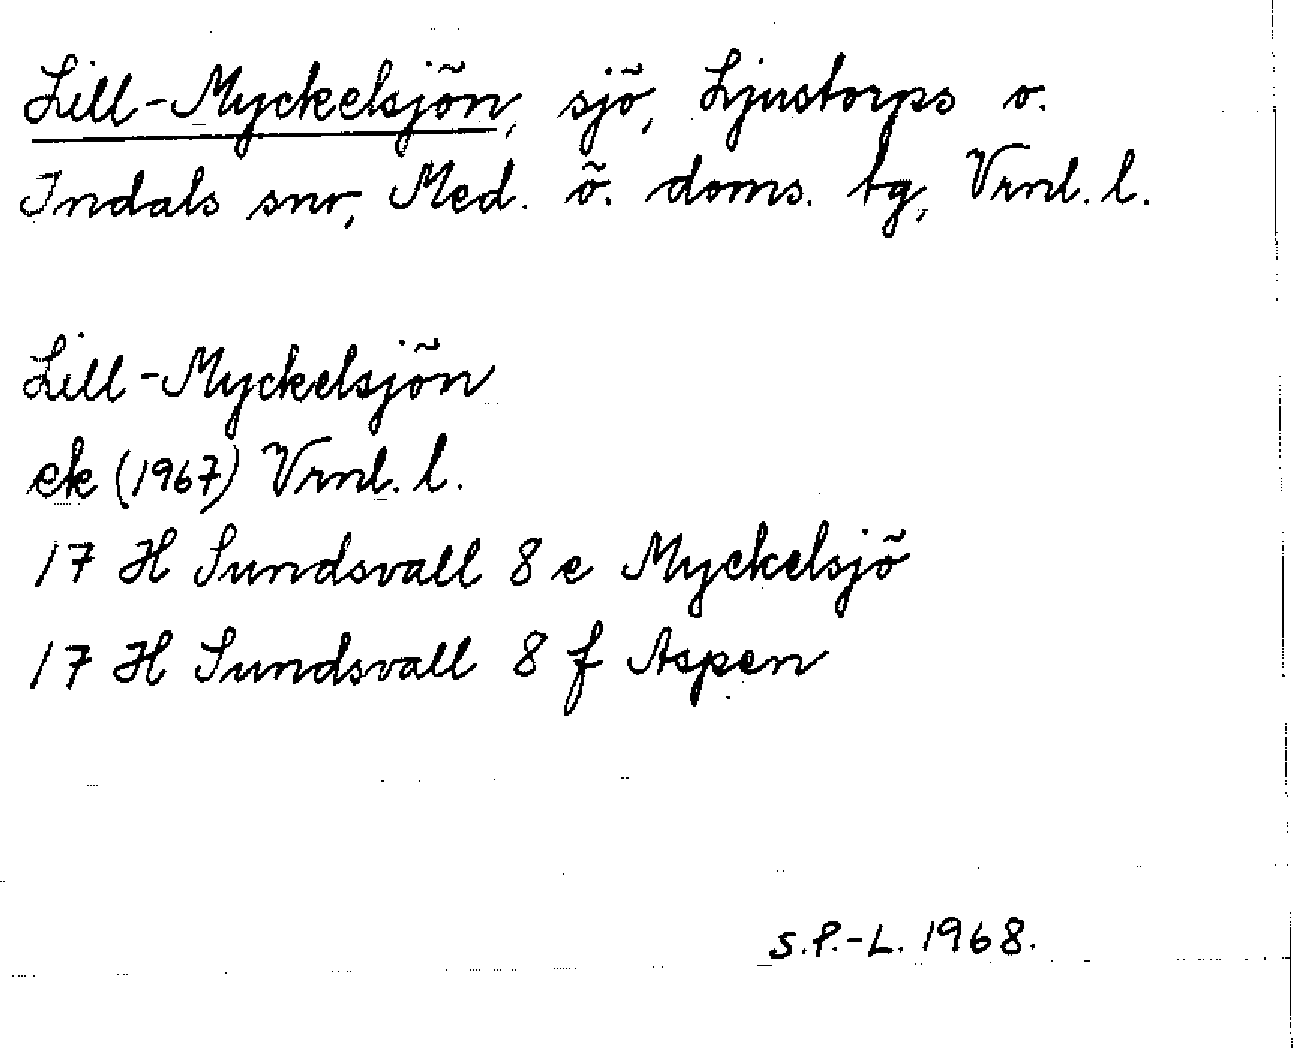 Lill-Myckelsjön, sjö, Ljustorps o.
Indals snr, Med. ö. doms. tg, Vrnl. l.
Lill-Myckelsjön
ek (1967) Vrnl. l.
17 H Sundsvall 8 e Myckelsjö
17 H Sundsvall 8 f Aspen
S.P.-L. 1968.